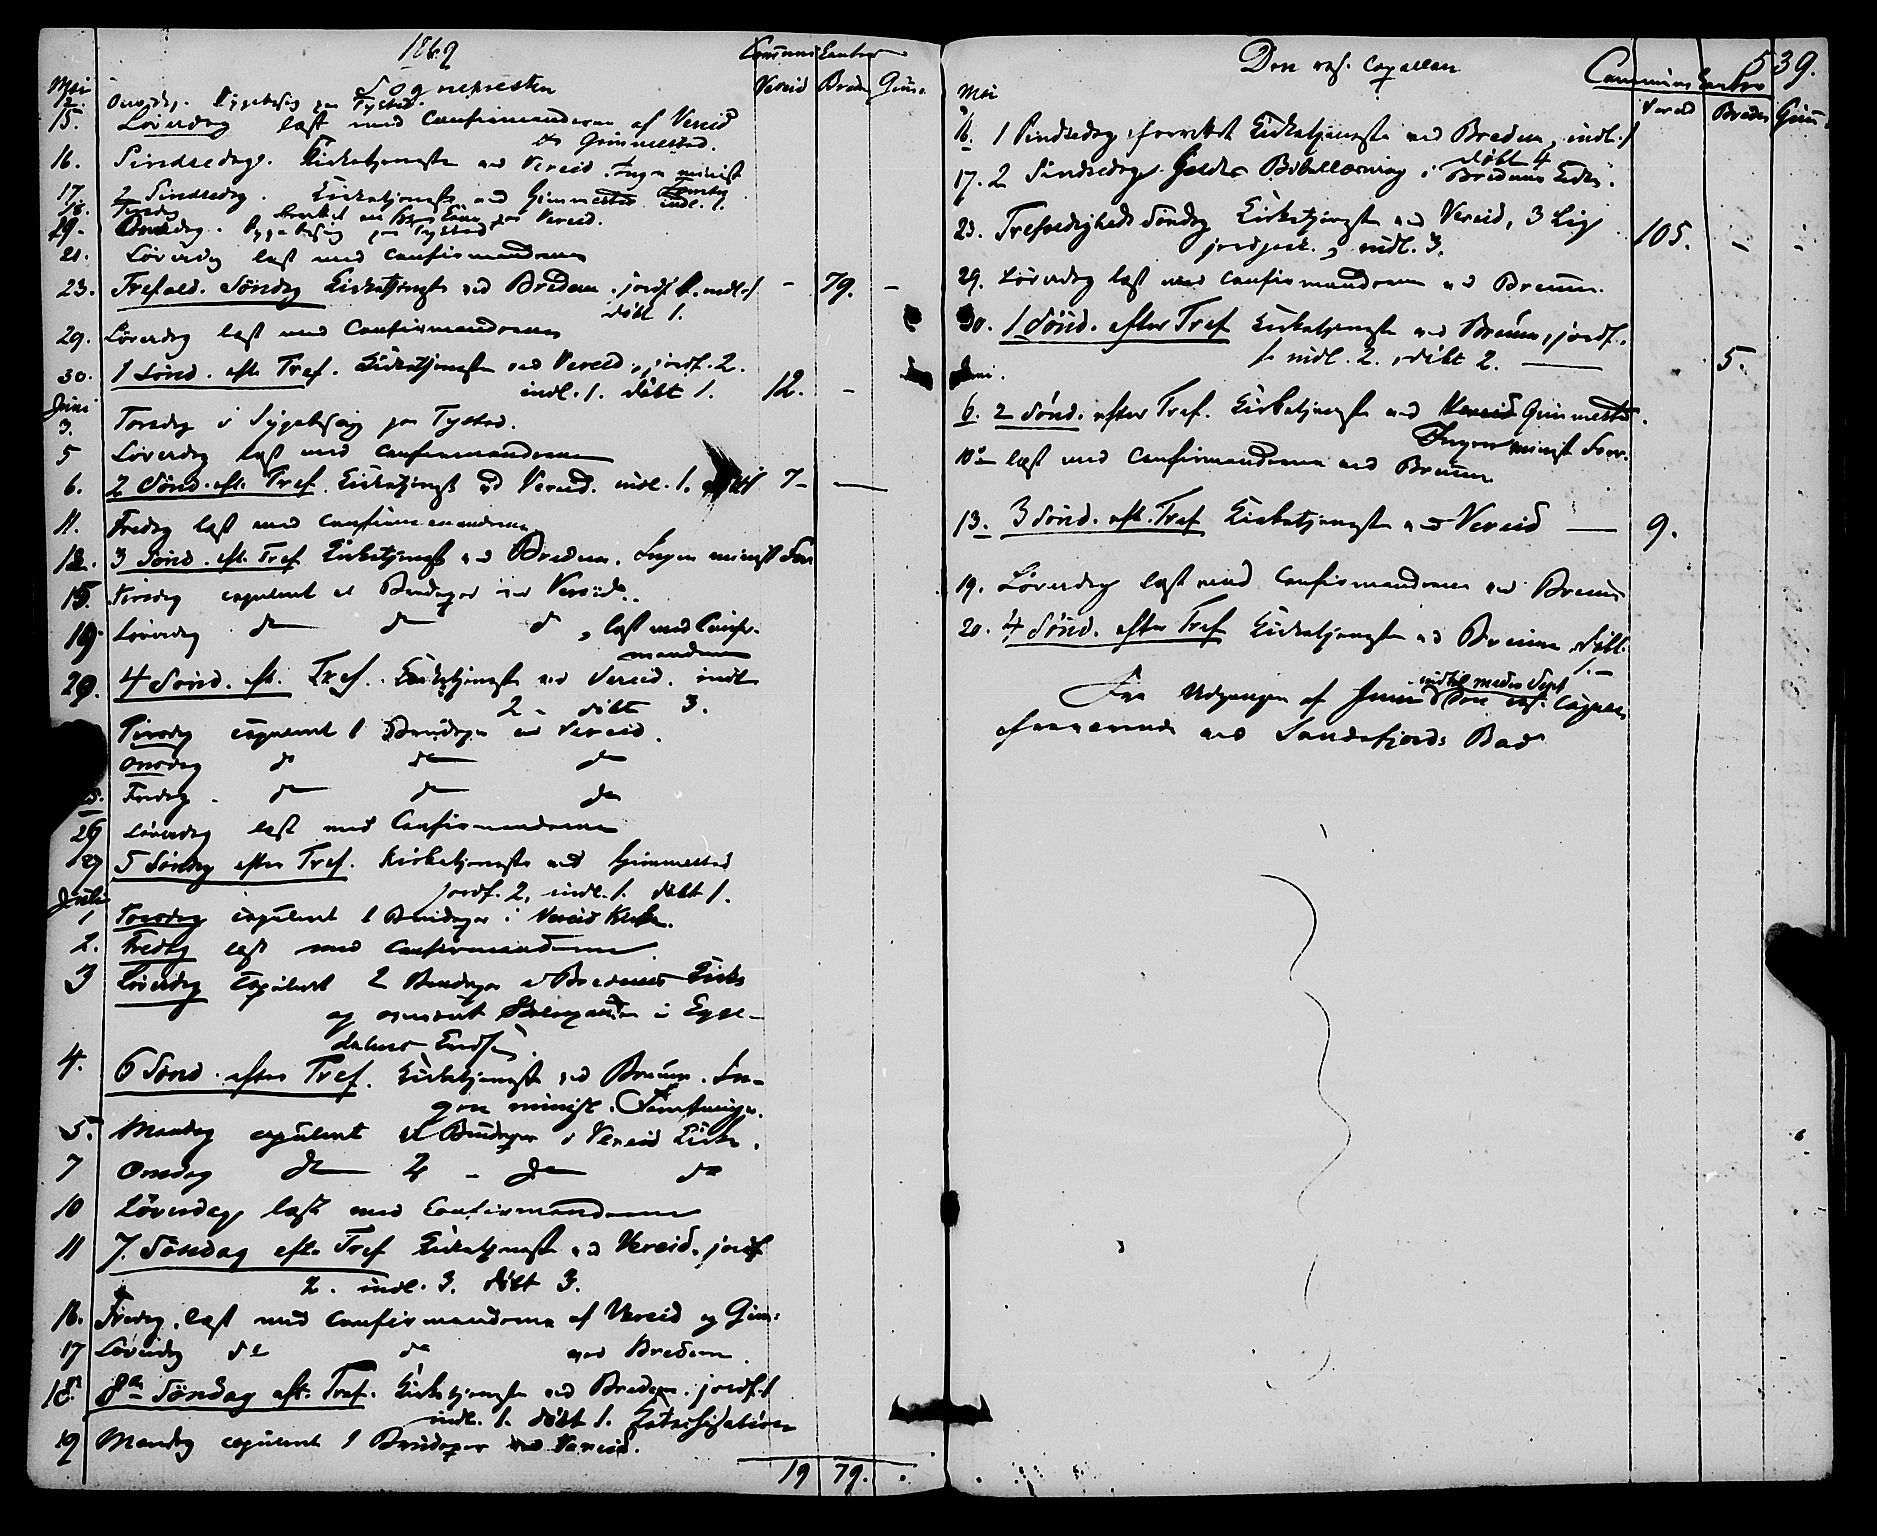 1869
Communicanter
Sognepresten
Mai
Vereid Bredm Gim.
12. Onsdag. Sygebesøg paa Tystad.
15. Løverdag læst med Confirmanderne af Vereid og Gimmestad.
16. Pindsedag. Kirketjeneste ved Vereid. Ingen minist Forretn
17. 2 Pindsedag. Kirketjeneste ved Gimmestad indl. 1.
18. Tirsdag
Vereid.
19. Onsdag. Sygebesøg paa Tystad
21. Løverdag læst med Confirmanderne
23. Trefold. Søndag Kirketjeneste ved Bredem. jordf. indl. 1 - 79. -
døbt 1.
29. Løverdag læst med Confirmanderne
30. 1 Sønd. eft. Tref. Kirketjeneste ved Vereid, jordf. 2.
indl. 1. døbt 1. 12. -
Juni
3. Torsdag Sygebesøg paa Tystad.
5 Løverdag læst med Confirmanderne
6. 2 Sønd. eft. Tref. Kirketjeneste ved Vereid. indl. 1. 7 -
11. Fredag læst med Confirmanderne
3 Sønd. eft. Tref. Kirketjeneste ved Bredem. Ingen minist Forr
15. Tirsdag copuleret et Brudepar ved Vereid.
19. Løverdag do do do, læst med Confirmanderne
20. 4 Sønd. eft. Tref. Kirketjeneste ved Vereid. indl
2 - døbt 3.
Tirsdag copuleret 1 Brudepar ved Vereid.
Onsdag do do do
25. Fredag. do do do
26 Løverdag læst med Confirmanderne
27 5 Søndag efter Tref. Kirketjeneste ved Gimmestad
jordf. 2, indl. 1. døbt 1.
Juli
1 Torsdag copuleret 1 Brudepar i Vereid Kirke.
2. Fredag læst med Confirmanderne.
3 Løverdag copuleret 2 Brudepar i Bredems Kirke
og i Egge-
4. 6 Sønd. efter Tref. Kirketjeneste ved Bredem. In-
gen minist. Forretninger.
5. Mandag copuleret et Brudepar i Vereid Kirke.
7 Onsdag do 2 - do do
10 Löverdag læst med Confirmanderne
11 7. Søndag eft. Tref Kirketjeneste ved Vereid. jordf
2. indl. 3. døbt 3.
16. Fredag. læst med Confirmanderne af Vereid og Gim:
17 Løverdag do do ved Bredem.
18. 8de Søndag eft. Tref. Kirketjeneste ved Bredem. jordf. 1
indl. 1. døbt 1. Katechisation
19 Mandag copuleret 1 Brudepar ved Vereid.
19 79. .
539.
Den res. Capellan
Communicanter
Mai
Vereid Bredm Gim
16. 1 Pindsedag forrettet Kirketjeneste ved Bredem, indl. 1
døbt 4
17. 2 Pindsedag. Holdt Bibellæsning i Bredems Kirke.
23. Trefoldigheds Søndag Kirketjeneste ved Vereid, 3 Lig
jordfæst., indl. 3. 105. - -
29. Løverdag læst med Confirmanderne ved Breum.
30. 1 Sønd. efter Tref Kirketjeneste ved Breum, jordf.
1. indl. 2. døbt 2. 5.
Juni.
6. 2 Sønd. efter Tref. Kirketjeneste ved Vereid Gimmestad.
Ingen minist Forr.
10de læst med Confirmanderne ved Breum
13. 3 Sønd. eft. Tref Kirketjeneste ved Vereid 9.
19. Løverdag læst med Confirmanderne ved Breum
20. 4 Sønd. efter Tref Kirketjeneste ved Breum døbt
1. -
Fra Udgangen af Juni indtil medio Sept den res. Capellan
fraværende ved Sandefjords Bad